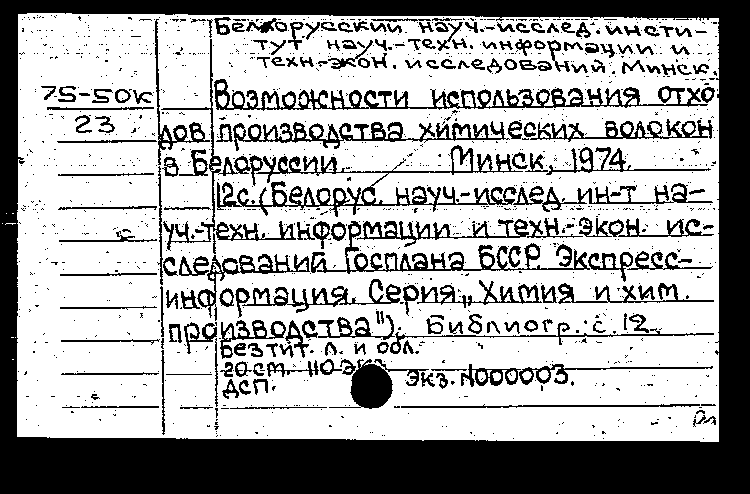 Белорусский науч.-исслед. инсти-
тут науч.-техн. информации и
техн.-экон. исследований. Минск.
75-50к Возможности использования отхо-
23 дов производства химических волокон
в Белоруссии. Минск, 1974.
12с. (Белорус. науч.-исслед. ин-т на-
уч.-техн. информации и техн.-экон. ис-
следований Госплана БССР. Экспресс-
информация. Серия „Химия и хим.
производства"). Библиогр.: с. 12
Без тит. л. и обл.
20 см. 110 экз.
ДСП. Экз. N000003.